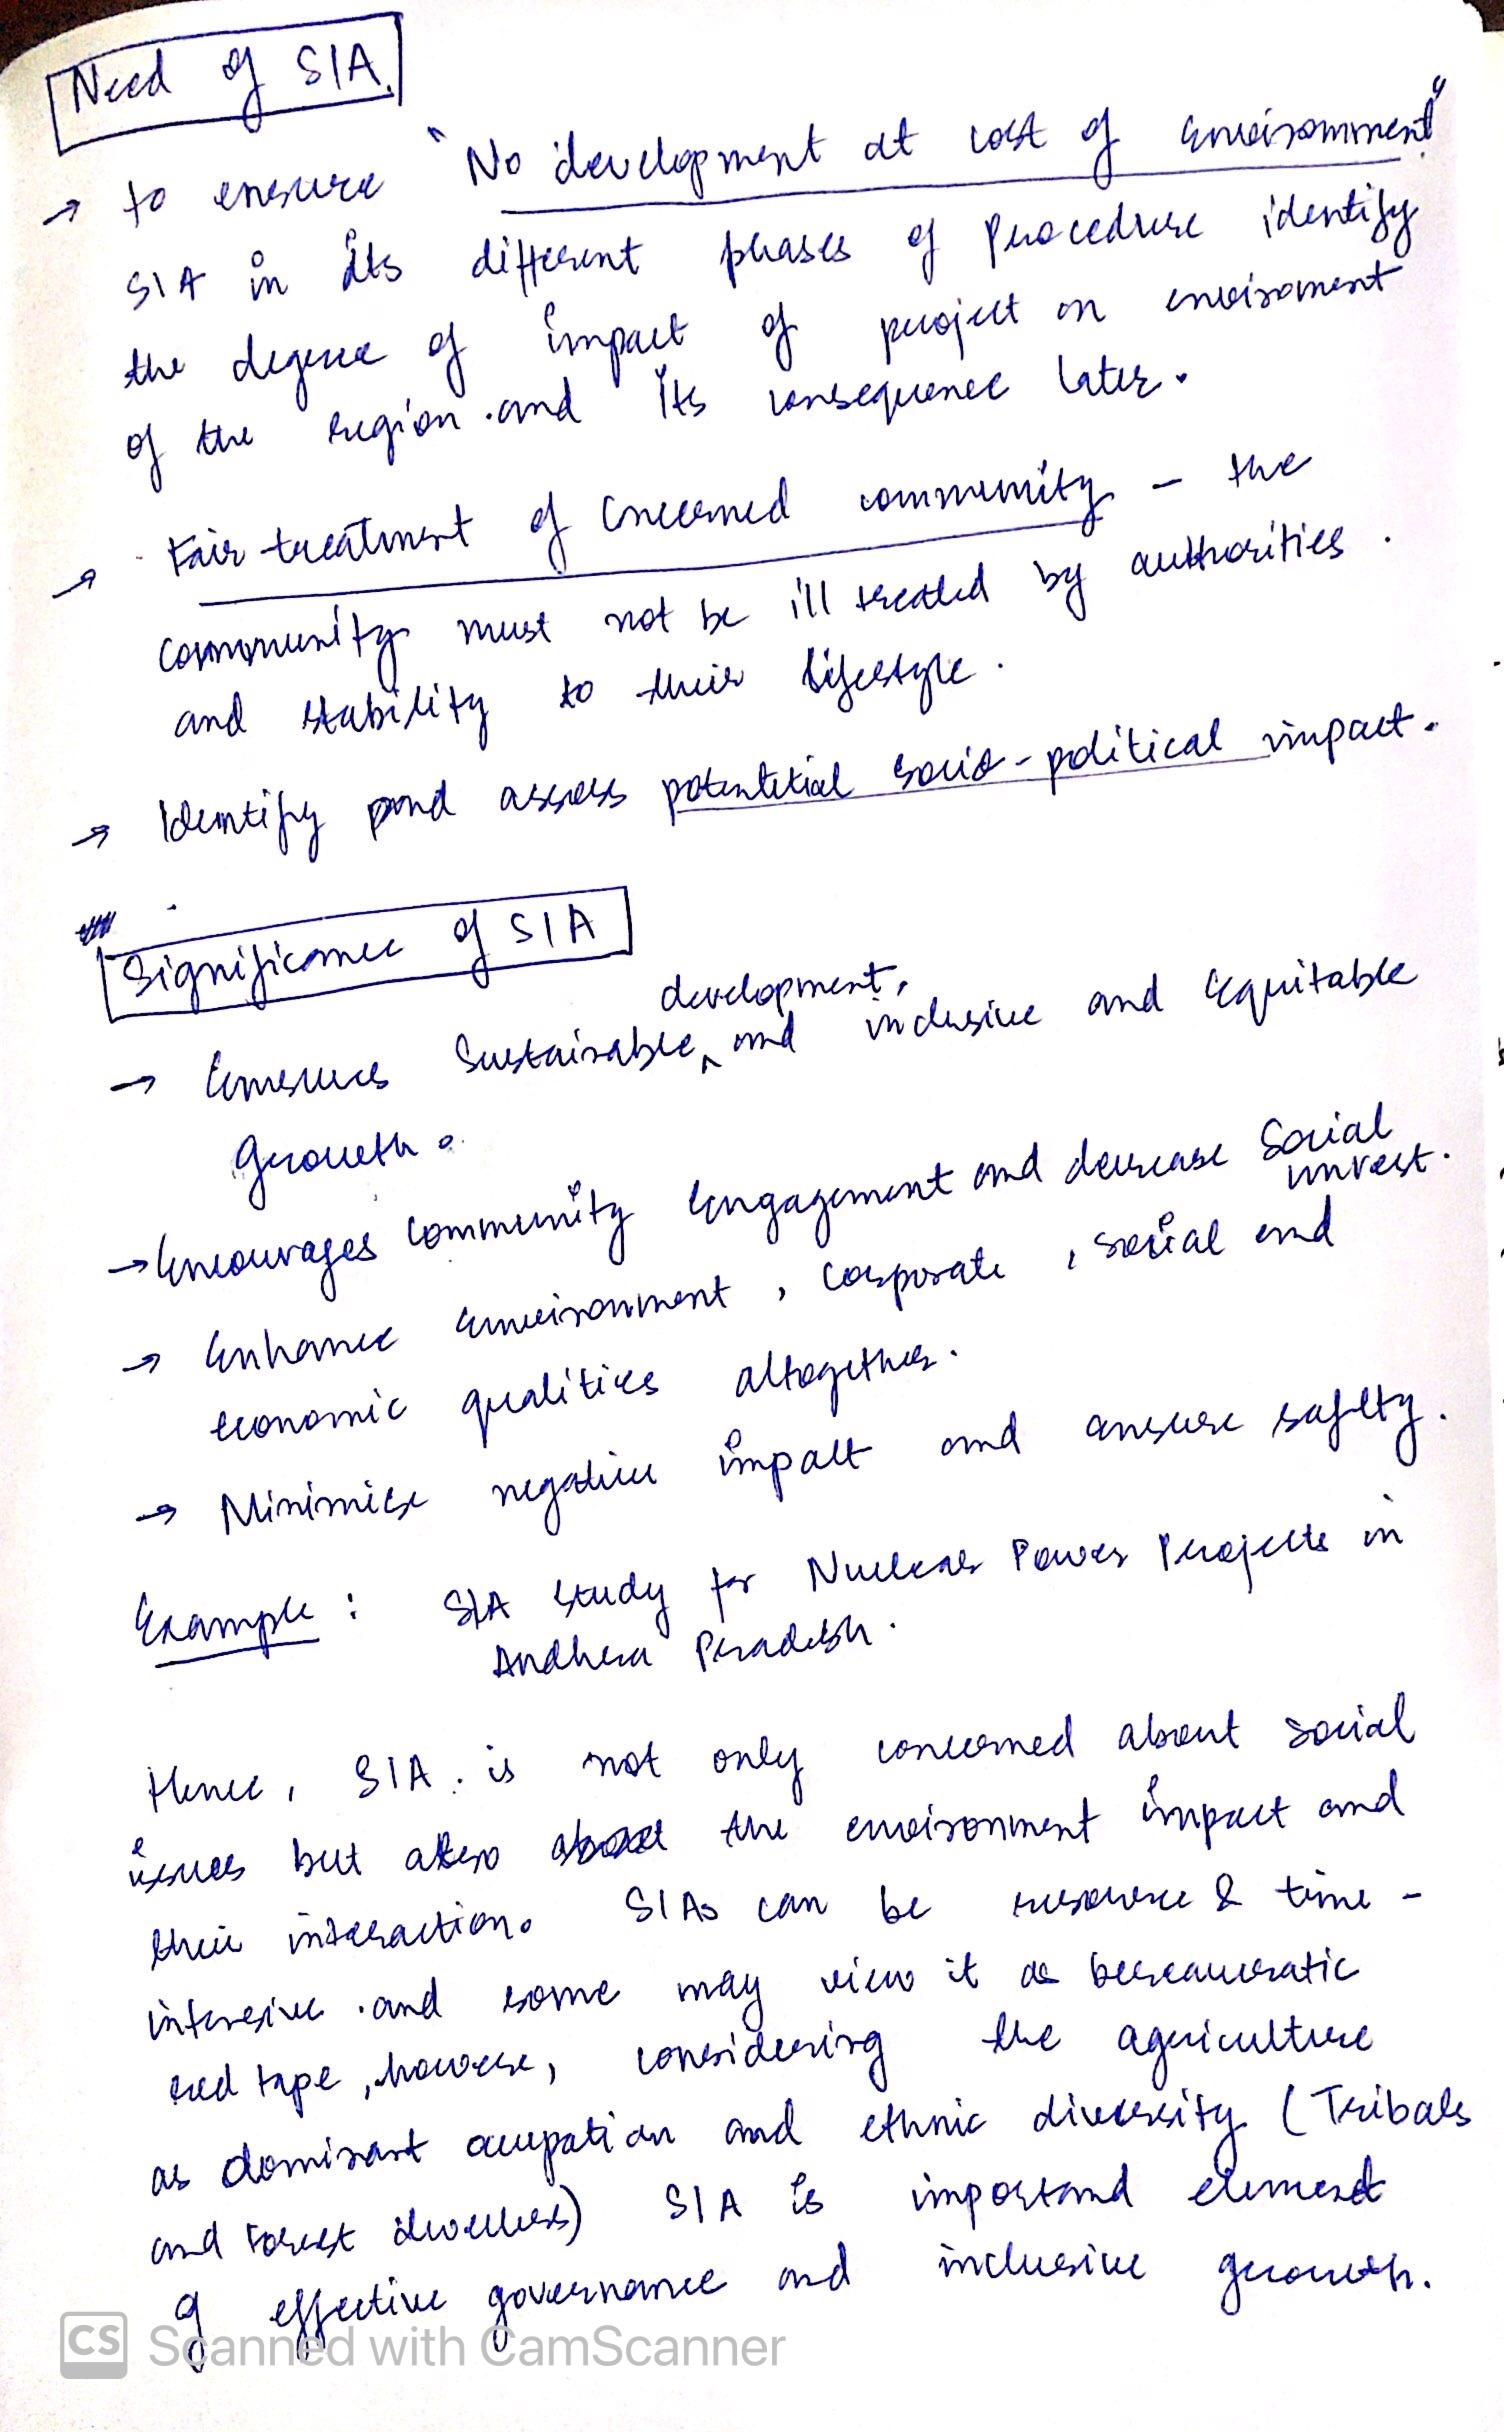 Need of SIA.
→ to ensure "No development at cost of environment"
SIA in its different phases of procedure identify
the degree of impact of project on enviroment
of the region and its consequence later.
→ Fair treatment of concerned community - the
community must not be ill treated by authorities.
and stability to their lifestyle.
→ Identify and assess potentetial socio-political impact.
Significance of SIA
development,
→ Ensures Sustainable ^ and inclusive and Equitable
growth.
→ Encourages community Engagement and decrease Social
unrest.
→ Enhance environment, corporate, social and
economic qualities altogether.
→ Minimise negative impact and ensure safety.
Example : SIA study for Nuclear Power Projects in
Andhra Pradesh.
Hence, SIA is not only concerned about social
issues but also about the environment impact and
their interaction. SIAs can be resource & time-
intensive and some may view it as bureaucratic
red tape, however, considering the agriculture
as dominant occupation and ethnic diversity (Tribals
and forest dwellers) SIA is importand element
of effective governance and inclusive growth.
CS Scanned with CamScanner